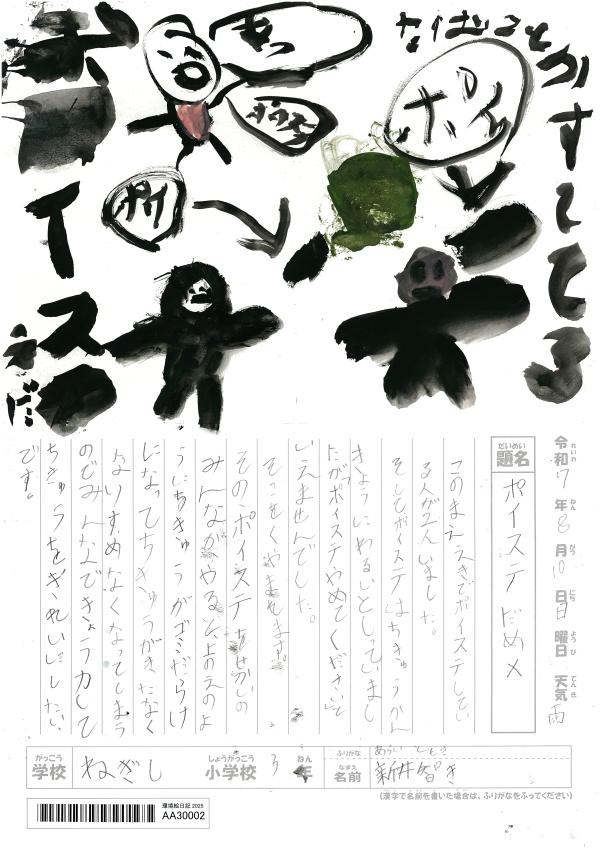 ポイステ
だめ
あっ
ポイ
だめ
令和7年8月10日日曜日 天気 雨
れいわ ねん がつ にち ようび てんき
だいめい
題名 ポイステ だめ×
このまええきでポイステしてい
る人が2人いました。
そしてポイステはちきゅうかん
きょうにわるいとしっていまし
たがポイステやめてくださいと
いえませんでした。
そこをくやまれます。
そのポイステをせかいの
みんながやると、上のえのよ
うにちきゅうがゴミだらけ
になってちきゅうがきたなく
なりすめなくなってしまう
のでみんなできょう力して
ちきゅうをきれいにしたい
です。
がっこう しょうがっこう ねん ふりがな
学校 ねぎし 小学校 3年
なまえ
名前 新井智き
(漢字で名前を書いた場合は、ふりがなをふってください)
環境絵日記 2025
AA30002